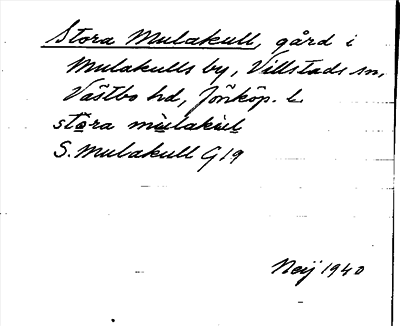 Stora Mulakull, gård i
Mulakulls by, Villstads sn,
Västbo hd, Jönköp. l.
stora mulakul
S. Mulakull G 19
Neij 1940